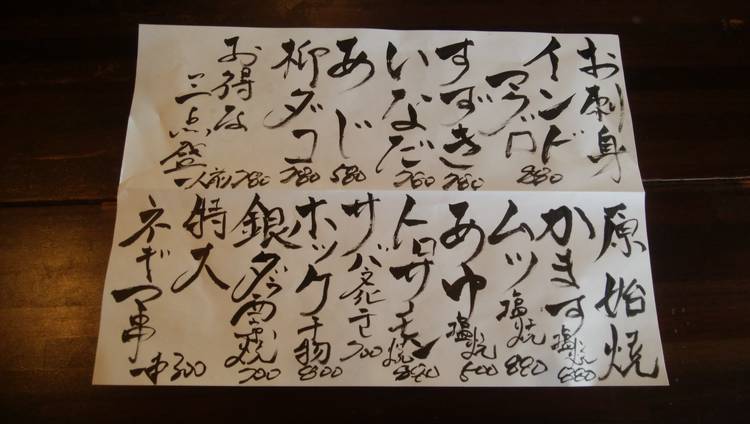 お刺身
インドマグロ 880
すずき 780
いなだ 760
あじ 580
柳ダコ 780
お得な
三点盛 一人前 780
原始焼
かます塩焼 880
ムツ塩焼 890
あゆ塩焼 600
トロサーモン焼 890
サバ文化干 700
ホッケ干物 800
銀ダラ西京焼 700
特大
ネギマ串 一本 300